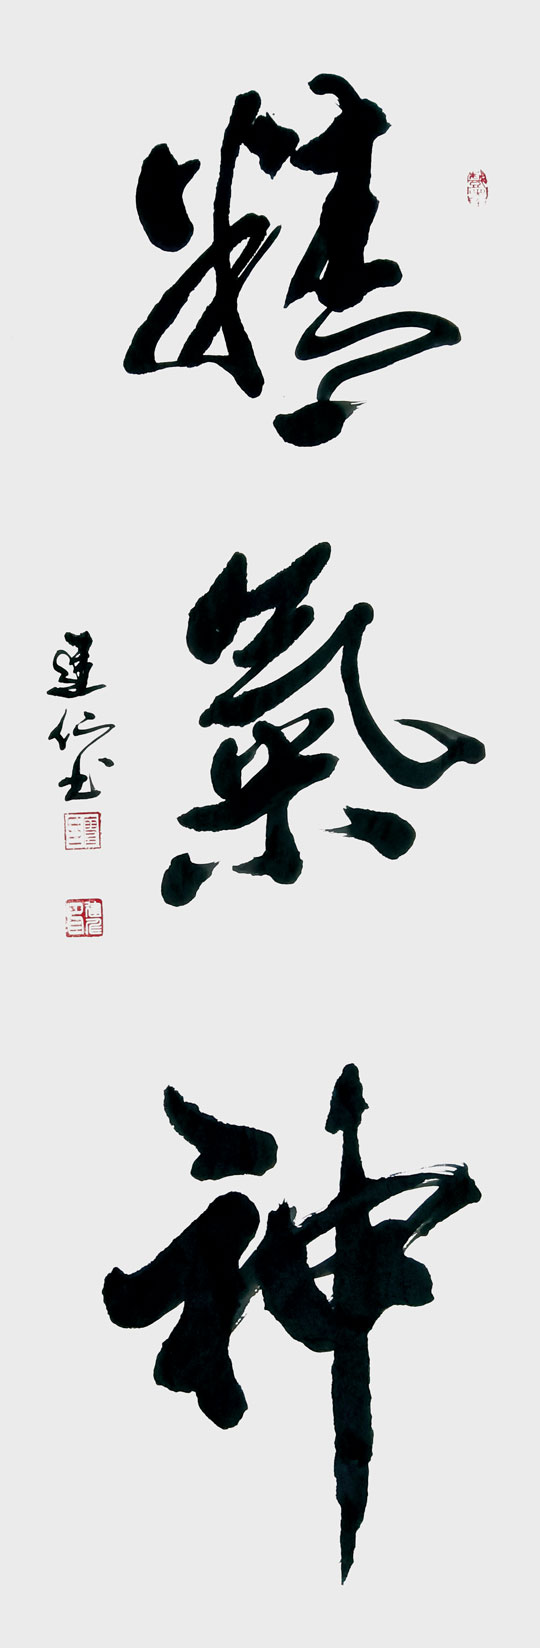 精
氣
神
建仁书